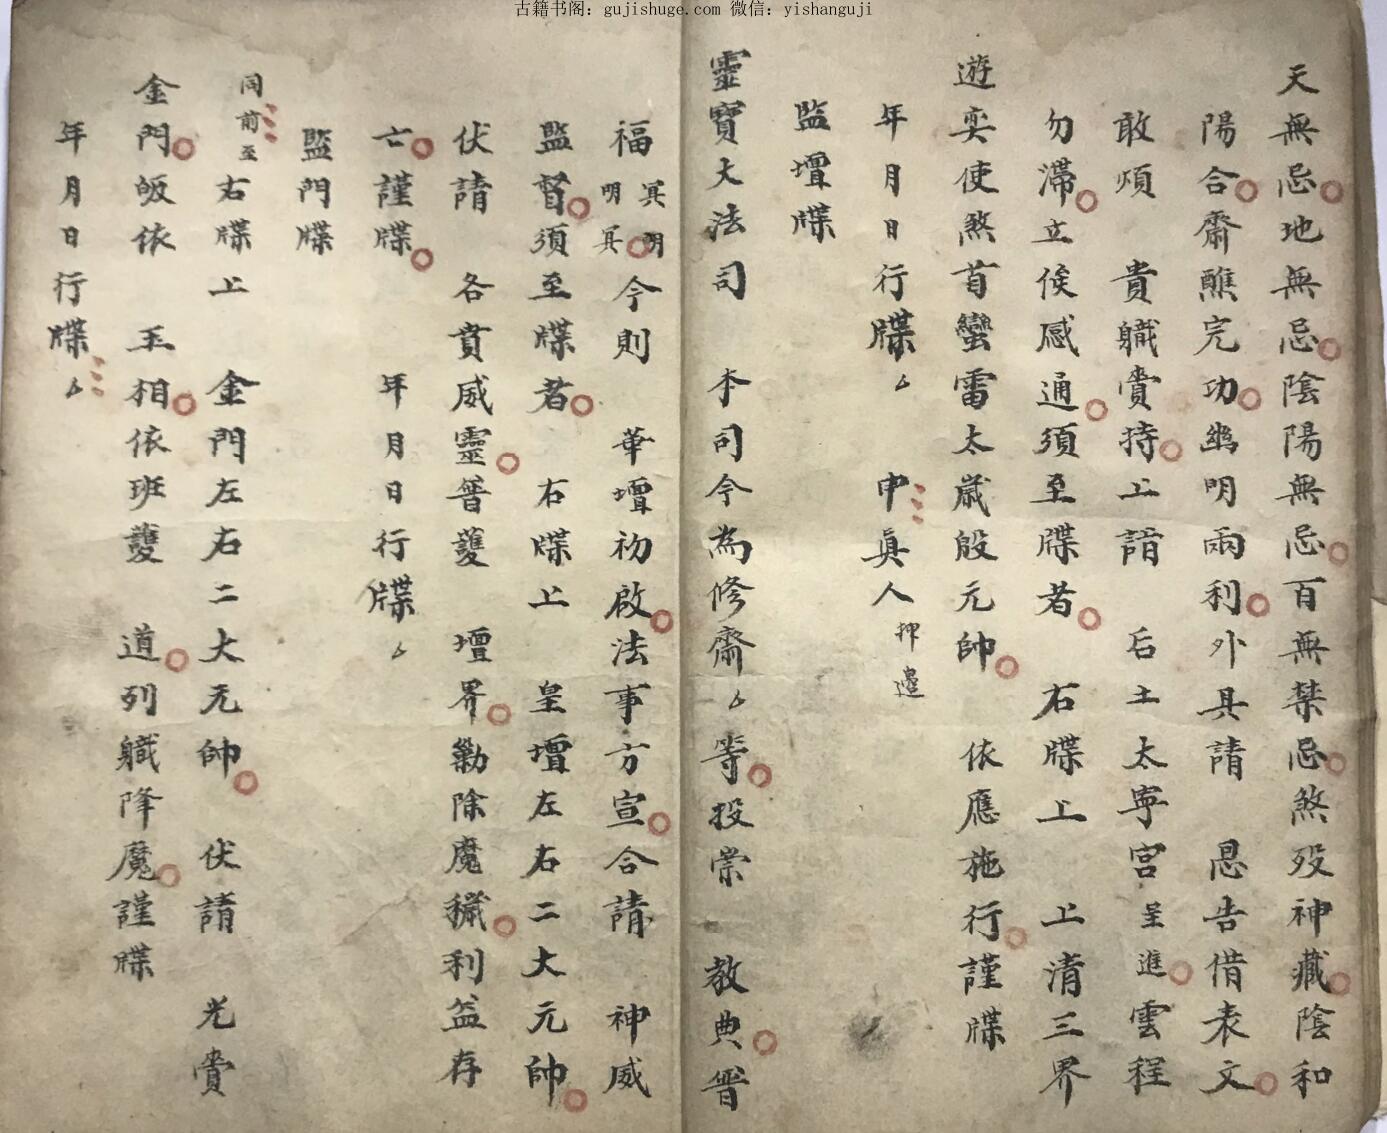 古籍书阁：gujishuge.com 微信：yishanguji
天無忌地無忌陰陽無忌百無禁忌煞歿神藏陰和
陽合齋醮完功幽明兩利外具請 恳告借表文
敢煩 貴職賫持上詣 后土太寧宮呈進雲程
勿滯立俟感通須至牒者 右牒上 上清三界
遊奕使煞首蠻雷太歲殷元帥 依應施行謹牒
年月日行牒 申真人押邉
監壇牒
靈寶大法司 本司今為修齋等投崇 教典晉
福冥明明冥今則 華壇初啟法事方宣合請 神威
監督須至牒者 右牒上 皇壇左右二大元帥
伏請 各賁威靈普護 壇界勦除魔穢利益存
亡謹牒 年月日行牒
監門牒
同前至右牒上 金門左右二大元帥 伏請 光賁
金門皈依 玉相依班護 道列職降魔謹牒
年月日行牒